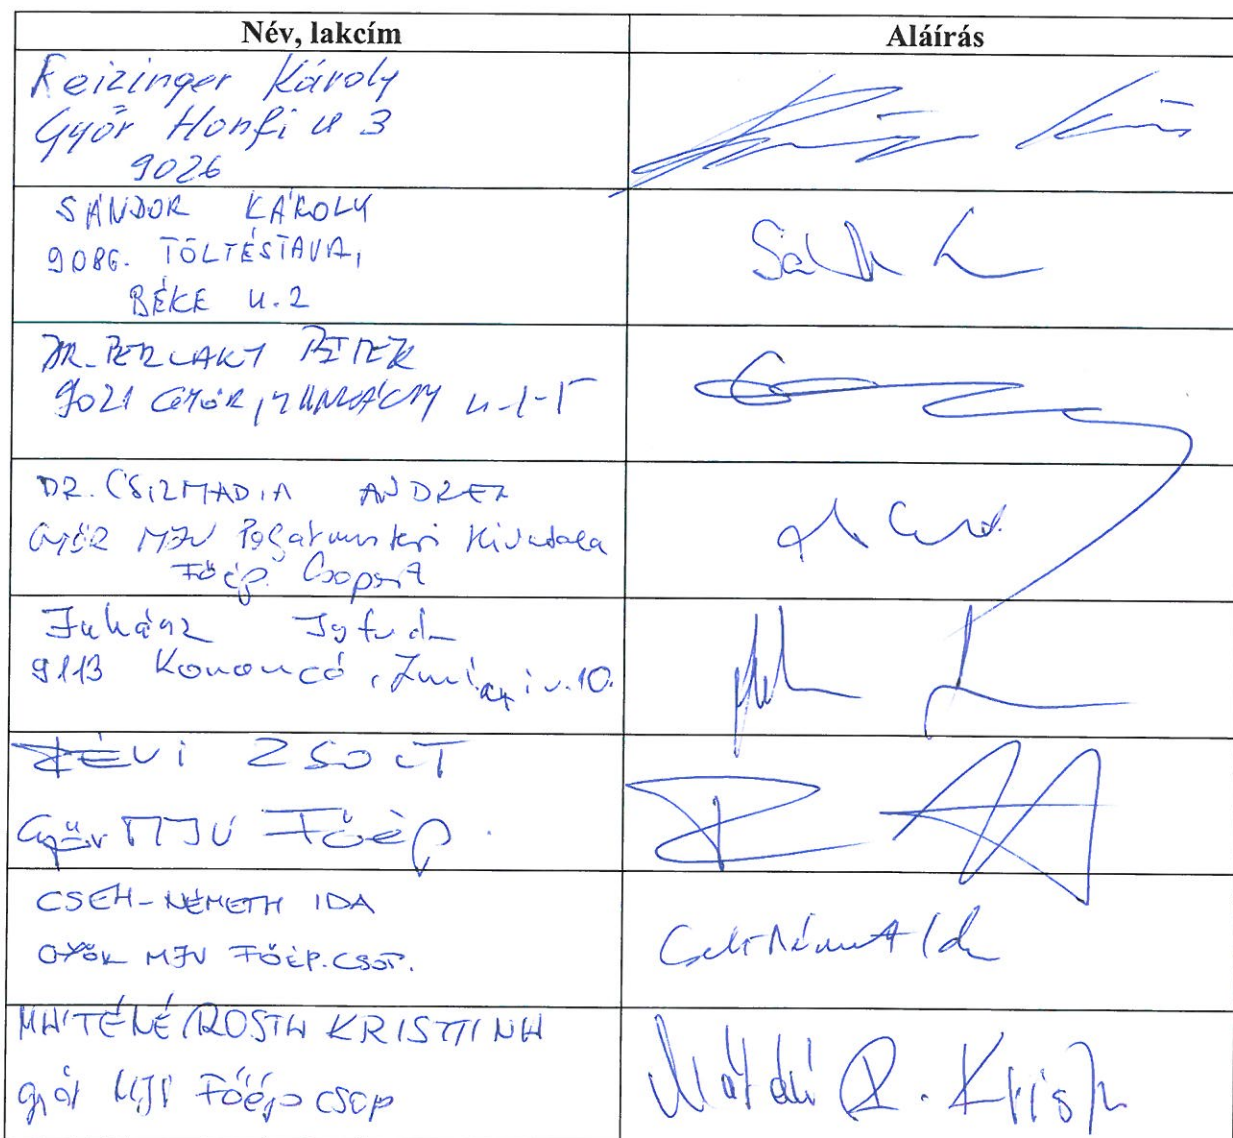 Név, lakcím
Aláírás
Reizinger Károly
Győr Honfi u 3
9026
SÁNDOR KÁROLY
9086. TÖLTÉSTAVA,
BÉKE u. 2
DR. PERLAKY PÉTER
9021 GYŐR, u-1-5
DR. CSIZMADIA ANDREA
GYŐR MJV Polgármesteri Hivatala
Főép. Csoport
Juhász
9113 Koroncó, Zrínyi u. 10.
RÉVI ZSOLT
Győr MJV Főép.
CSEH-NÉMETH IDA
GYŐR MJV FŐÉP. CSOP.
Cseh-Németh Ida
MÁTÉNÉ ROSTA KRISTTINA
Győr MJV Főép CSOP
Máténé R. Kriszti